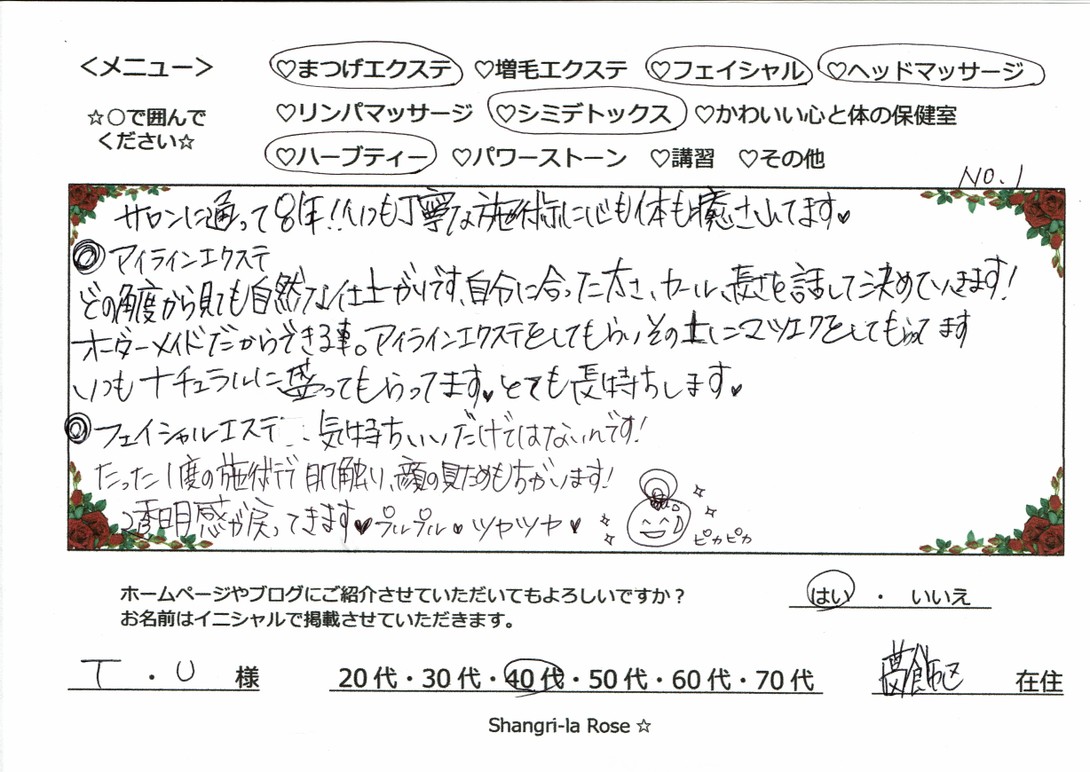 ＜メニュー＞
♡まつげエクステ ♡増毛エクステ ♡フェイシャル ♡ヘッドマッサージ
☆○で囲んで
ください☆
♡リンパマッサージ ♡シミデトックス ♡かわいい心と体の保健室
♡ハーブティー ♡パワーストーン ♡講習 ♡その他
NO.1
サロンに通って8年!!いつも丁寧な施術に心も体も癒されてます♥
◎アイラインエクステ
どの角度から見ても自然な仕上がりです、自分に合った太さ、カール、長さを話して決めていきます!
オーダーメイドだからできる事。アイラインエクステをしてもらいその上にマツエクをしてもらってます
いつもナチュラルに盛ってもらってます♥とても長持ちします♥
◎フェイシャルエステ…気持ちいいだけではないんです!
たった1度の施術で肌触り、顔の見ためもちがいます!
透明感が戻ってきます♥プルプル♥ツヤツヤ♥
ピカピカ
ホームページやブログにご紹介させていただいてもよろしいですか？
お名前はイニシャルで掲載させていただきます。
はい ・ いいえ
T ・ U 様
20代・30代・40代・50代・60代・70代
在住
Shangri-la Rose ☆